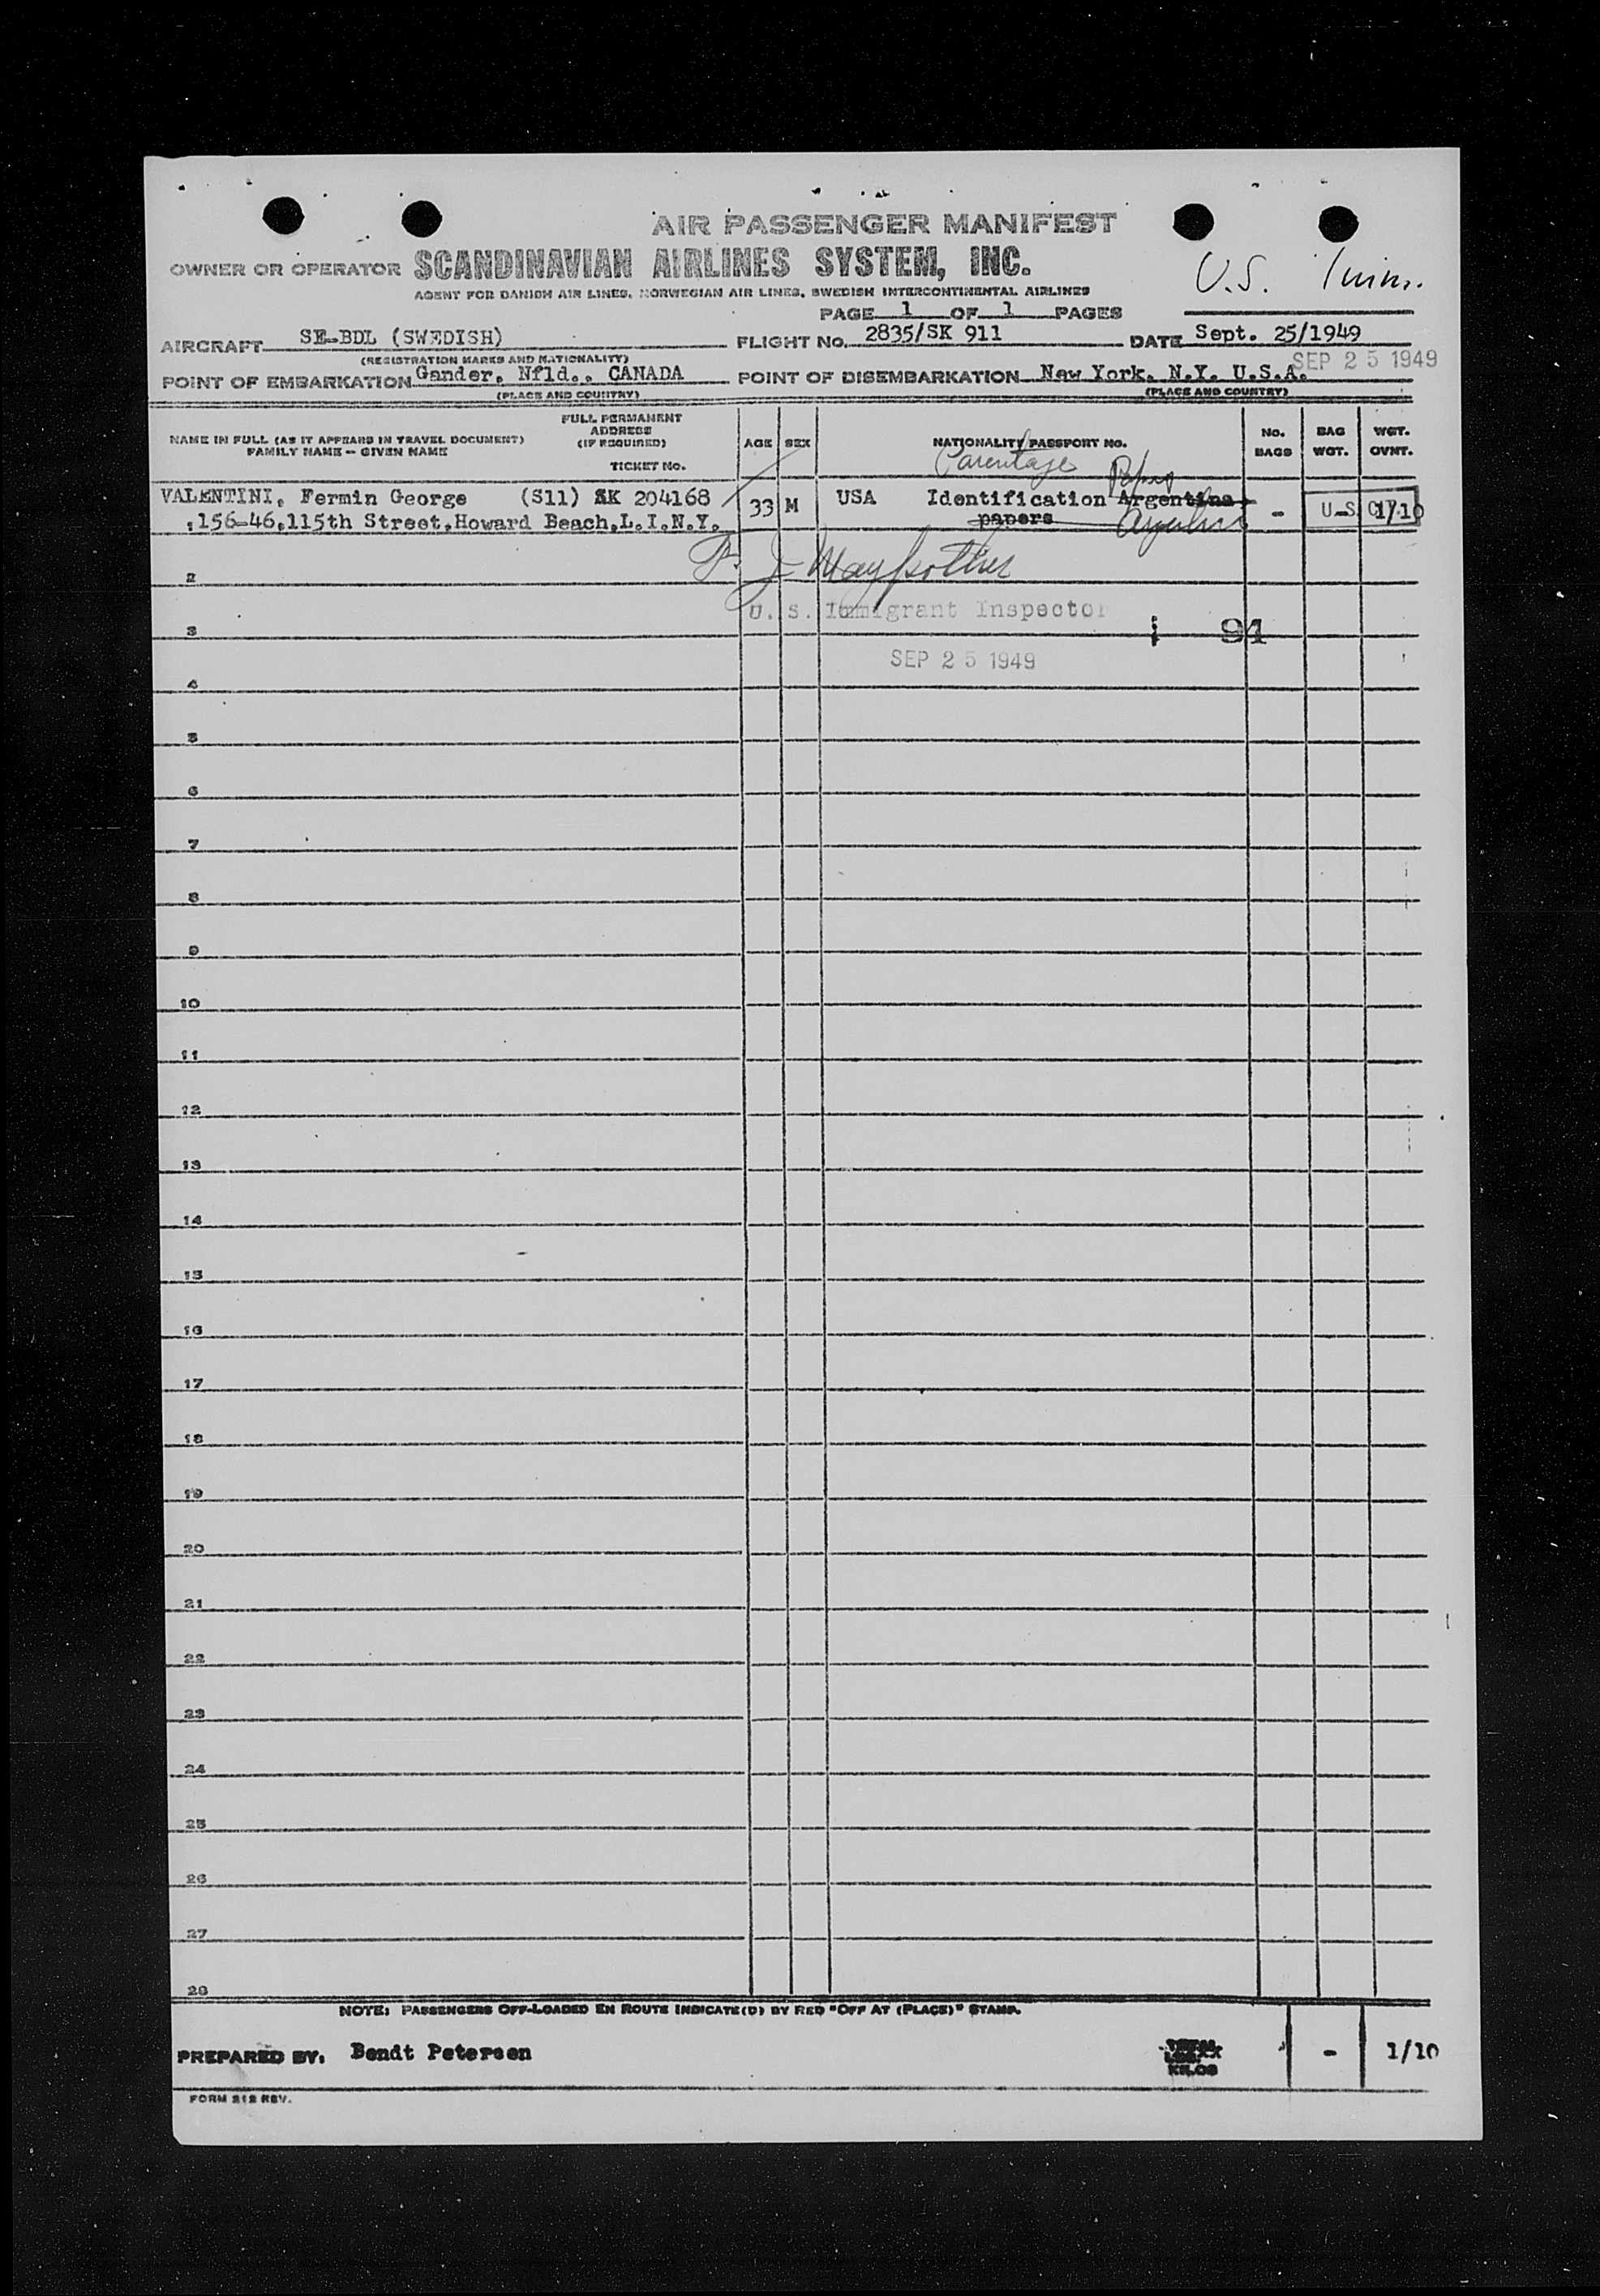 AIR PASSENGER MANIFEST
OWNER OR OPERATOR SCANDINAVIAN AIRLINES SYSTEM, INC.
U.S. Imm.
AGENT FOR DANISH AIR LINES, NORWEGIAN AIR LINES, SWEDISH INTERCONTINENTAL AIRLINES
PAGE 1 OF 1 PAGES
AIRCRAFT SE-BDL (SWEDISH) FLIGHT NO. 2835/SK 911 DATE Sept. 25/1949
(REGISTRATION MARKS AND NATIONALITY) SEP 25 1949
POINT OF EMBARKATION Gander, Nfld., CANADA POINT OF DISEMBARKATION New York, N.Y. U.S.A.
(PLACE AND COUNTRY) (PLACE AND COUNTRY)
NAME IN FULL (AS IT APPEARS IN TRAVEL DOCUMENT)
FAMILY NAME - GIVEN NAME
FULL PERMANENT
ADDRESS
(IF REQUIRED)
TICKET NO.
AGE SEX NATIONALITY PASSPORT NO. NO. BAGS BAG WGT. WGT. OVNT.
Parentage Papers
VALENTINI, Fermin George (S11) SK 204168 33 M USA Identification Argentina - U.S.C. 1/10
156-46,115th Street,Howard Beach,L.I.N.Y. papers
2
U. S. Immigrant Inspector
3
94
SEP 25 1949
4
5
6
7
8
9
10
11
12
13
14
15
16
17
18
19
20
21
22
23
24
25
26
27
28
NOTE: PASSENGERS OFF-LOADED EN ROUTE INDICATE(D) BY RED "OFF AT (PLACE)" STAMP.
PREPARED BY: Bendt Petersen KILOS - 1/10
FORM 212 REV.